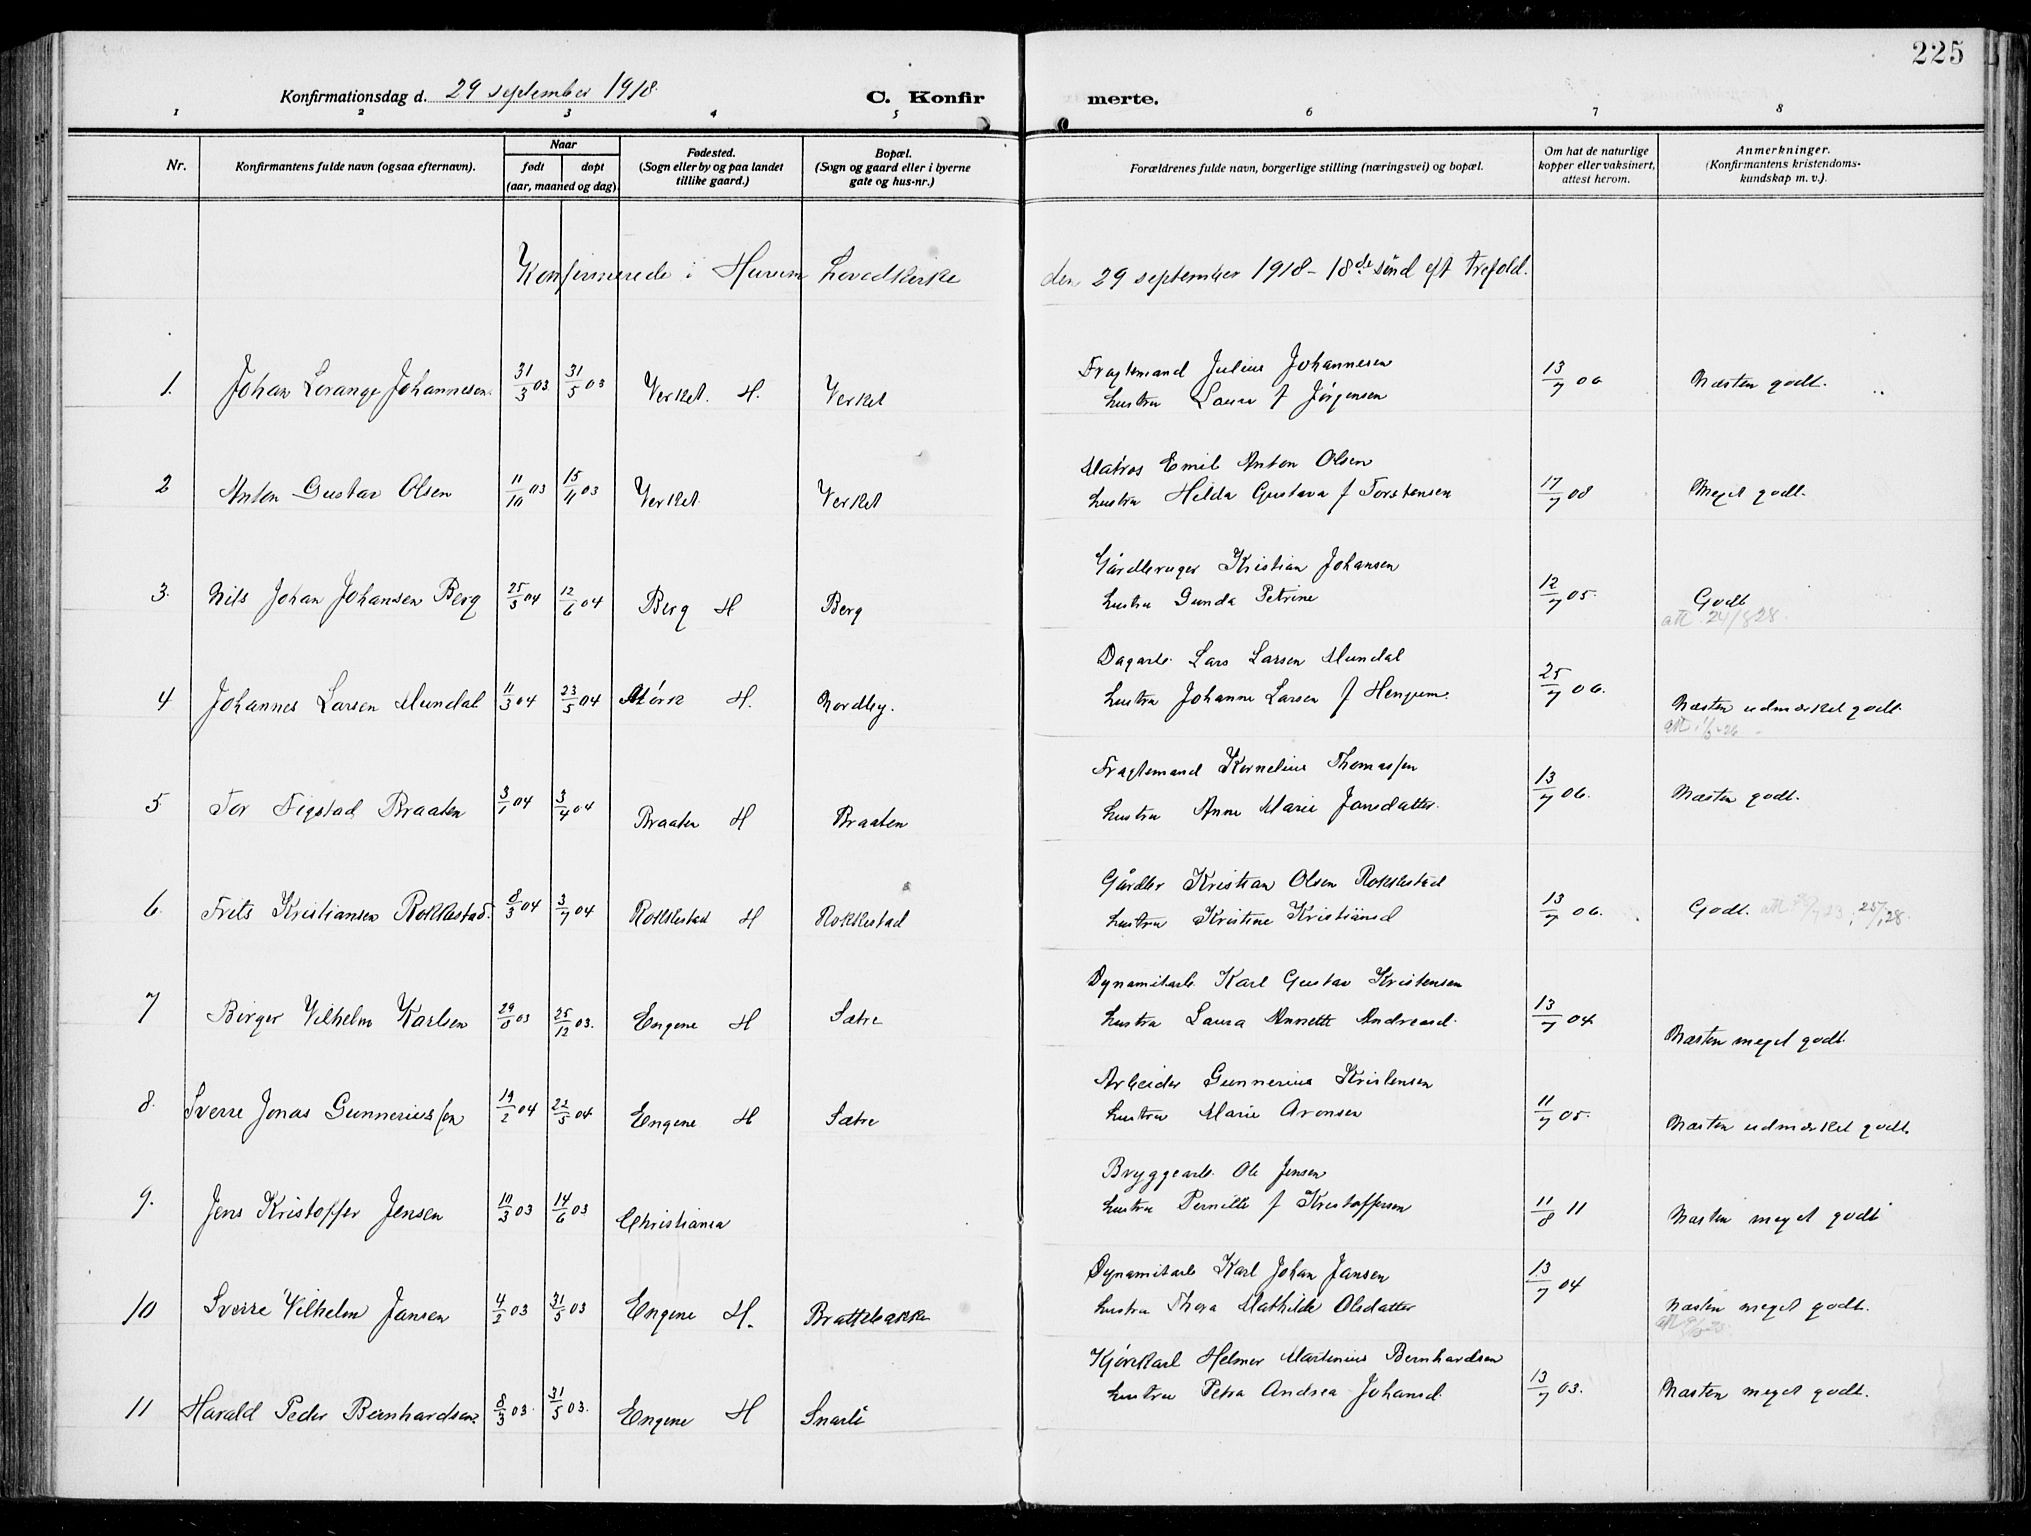 225
Konfirmationsdag d. 29 september 1918.
C. Konfir merte.
1 2 3 4 5 6 7 8
Nr.
Konfirmantens fulde navn (ogsaa efternavn).
Naar
født døpt
(aar, maaned og dag).
Fødested.
(Sogn eller by og paa landet
tillike gaard.)
Bopæl.
(Sogn og gaard eller i byerne
gate og hus-nr.)
Forældrenes fulde navn, borgerlige stilling (næringsvei) og bopæl.
Om hat de naturlige
kopper eller vaksinert,
attest herom.
Anmerkninger.
(Konfirmantens kristendoms-
kundskap m. v.).
Konfirmerede i Hurum hovedkirke den 29 september 1918 - 18de sønd eft trefold.
Fragtemand Julius Johannesen
1. Johan Lorange Johannesen. 31/3 03 31/5 03 Verket. H. Verket hustru Laura f Jørgensen 13/7 06 Næsten godt.
Matros Emil Anton Olsen
2 Anton Gustav Olsen 11/10 03 15/11 03 Verket Verket hustru Hilda Gustava f Torstensen 17/7 08 Meget godt.
Gårdbruger Kristian Johansen
3. Nils Johan Johansen Berg 25/3 04 12/6 04 Berg H Berg hustru Gunda Petrine 12/7 05. Godt
att. 24/8 28.
Dagarb. Lars Larsen Mundal
4 Johannes Larsen Mundal 11/3 04 23/5 04 Mørk H. Nordby. hustru Johanne Larsen f Hengum. 25/7 06. Næsten udmærket godt.
Fragtemand Kornelius Thomassen
5 Tor Tigstad Braaten 3/1 04 3/4 04 Braaten H Braaten hustru Anne Marie Jansdatter. 13/7 06. Næsten godt.
Gårdbr Kristian Olsen Rokkestad
6. Frits Kristiansen Rokkestad. 8/3 04 3/7 04 Rokkestad H Rokkestad hustru Kristine Kristiansd 13/7 06. Godt.
Dynamitarb Karl Gustav Kristensen
7 Birger Vilhelm Karlsen 29/8 03 25/12 03. Engene H Sætre hustru Laura Annette Andreasd. 13/7 04 Næsten meget godt.
Arbeider Gunnerius Kristensen
8. Sverre Jonas Gunneriussen 19/2 04 22/5 04 Engene H Sætre hustru Marie Aronsen 11/7 05. Næsten udmærket godt.
Bryggearb. Ole Jensen
9. Jens Kristoffer Jensen 10/3 03 14/6 03 Christiania hustru Pernille f Kristoffersen 11/8 11 Næsten meget godt
Dynamitarb Karl Johan Jansen
10 Sverre Vilhelm Jansen 4/2 03 31/5 03 Engene H. Brattebakke hustru Thora Mathilde Olsdatter 13/7 04 Næsten meget godt.
Kjørekarl Helmer Martinius Bernhardsen
11 Harald Peder Bernhardsen. 8/3 03. 31/5 03. Engene H Snarli hustru Petra Andrea Johansd. 13/7 03. Næsten meget godt.